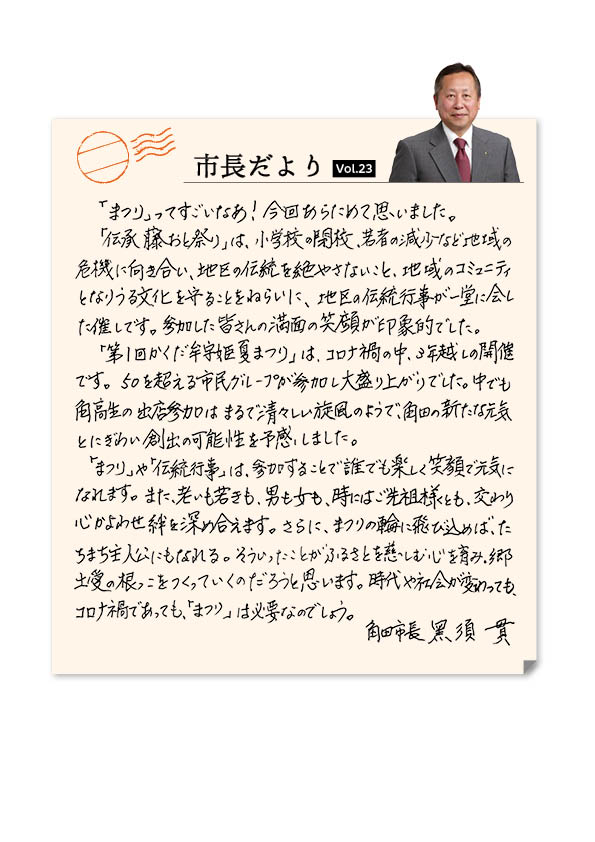 市長だより Vol.23
「まつり」ってすごいなあ！今回あらためて思いました。
「伝承 藤おと祭り」は、小学校の閉校、若者の減少など地域の
危機に向き合い、地区の伝統を絶やさないこと、地域のコミュニティ
となりうる文化を守ることをねらいに、地区の伝統行事が一堂に会し
た催しです。参加した皆さんの満面の笑顔が印象的でした。
「第1回かくだ牟宇姫夏まつり」は、コロナ禍の中、3年越しの開催
です。50を超える市民グループが参加し大盛り上がりでした。中でも
角高生の出店参加はまるで清々しい旋風のようで、角田の新たな元気
とにぎわい創出の可能性を予感しました。
「まつり」や「伝統行事」は、参加することで誰でも楽しく笑顔で元気に
なれます。また、老いも若きも、男も女も、時にはご先祖様とも、交わり
心かよわせ絆を深め合えます。さらに、まつりの輪に飛び込めば、た
ちまち主人公にもなれる。そういったことがふるさとを慈しむ心を育み、郷
土愛の根っこをつくっていくのだろうと思います。時代や社会が変わっても、
コロナ禍であっても、「まつり」は必要なのでしょう。
角田市長 黑須 貫